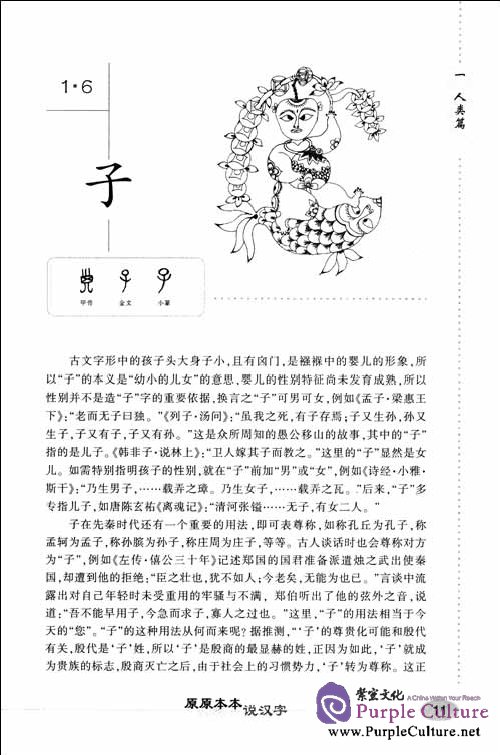 一 人类篇
1·6
子
甲骨
金文
小篆
古文字形中的孩子头大身子小,且有囟门,是襁褓中的婴儿的形象,所
以“子”的本义是“幼小的儿女”的意思,婴儿的性别特征尚未发育成熟,所以
性别并不是造“子”字的重要依据,换言之“子”可男可女,例如《孟子·梁惠王
下》:“老而无子曰独。”《列子·汤问》:“虽我之死,有子存焉;子又生孙,孙又
生子,子又有子,子又有孙。”这是众所周知的愚公移山的故事,其中的“子”
指的是儿子。《韩非子·说林上》:“卫人嫁其子而教之。”这里的“子”显然是女
儿。如需特别指明孩子的性别,就在“子”前加“男”或“女”,例如《诗经·小雅·
斯干》:“乃生男子,……载弄之璋。乃生女子,……载弄之瓦。”后来,“子”多
专指儿子,如唐陈玄祐《离魂记》:“清河张镒……无子,有女二人。”
子在先秦时代还有一个重要的用法,即可表尊称,如称孔丘为孔子,称
孟轲为孟子,称孙膑为孙子,称庄周为庄子,等等。古人谈话时也会尊称对方
为“子”,例如《左传·僖公三十年》记述郑国的国君准备派遣烛之武出使秦
国,却遭到他的拒绝:“臣之壮也,犹不如人;今老矣,无能为也已。”言谈中流
露出对自己年轻时未受重用的牢骚与不满,郑伯听出了他的弦外之音,说
道:“吾不能早用子,今急而求子,寡人之过也。”这里,“子”的用法相当于今
天的“您”。“子”的这种用法从何而来呢?据推测,“‘子’的尊贵化可能和殷代
有关,殷代是‘子’姓,所以‘子’是殷商的最显赫的姓,正因为如此,‘子’就成
为贵族的标志,殷商灭亡之后,由于社会上的习惯势力,‘子’转为尊称。这正
原原本本
说汉字
紫宝文化
A China Within Your Reach
Purple Culture
11
www.PurpleCulture.net